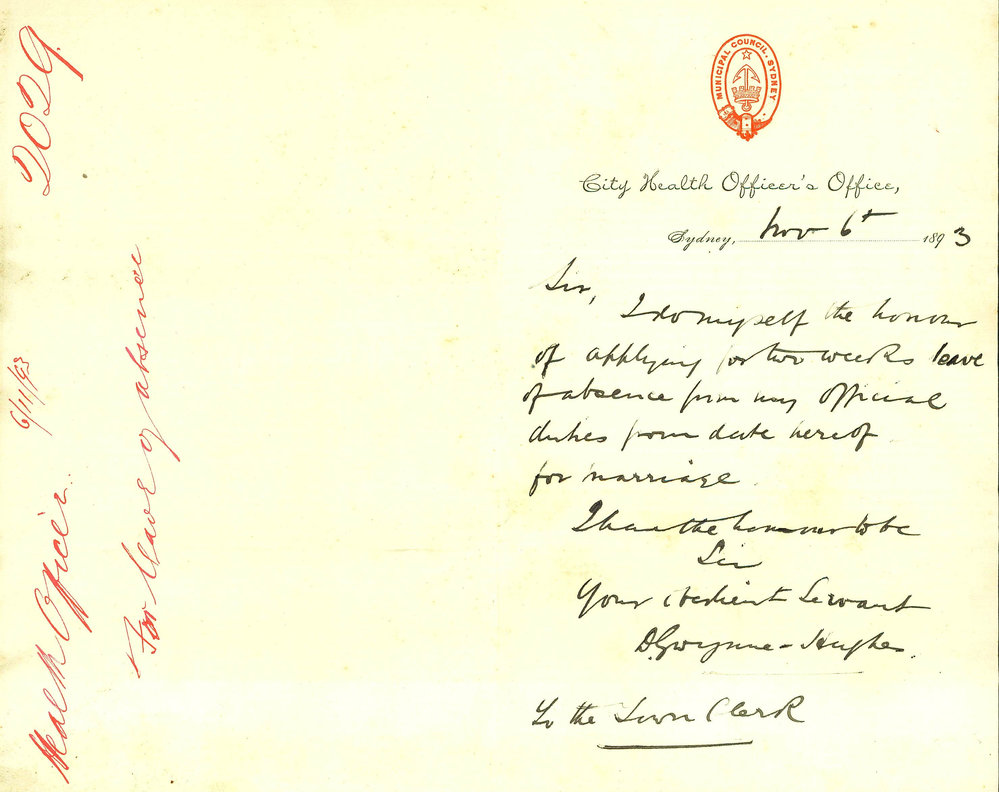 2029.
Health Officer. 6/11/93
For leave of absence
MUNICIPAL COUNCIL. SYDNEY
City Health Officer's Office,
Sydney, Nov 6t 1893
Sir,
I do myself the honour
of applying for two weeks leave
of absence from my official
duties from date hereof
for marriage
I have the honour to be
Sir
Your obedient Servant
D. Gwynne-Hughes.
To the Town Clerk